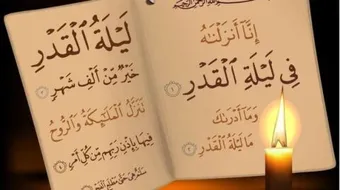 إِنَّا أَنزَلْنَاهُ
فِي لَيْلَةِ الْقَدْرِ ١
وَمَا أَدْرَىٰكَ
مَا لَيْلَةُ الْقَدْرِ ٢
لَيْلَةُ الْقَدْرِ
خَيْرٌ مِّنْ أَلْفِ شَهْرٍ ٣
تَنَزَّلُ الْمَلَٰٓئِكَةُ وَالرُّوحُ
فِيهَا بِإِذْنِ رَبِّهِم مِّن كُلِّ أَمْرٍ ٤
سَلَٰمٌ هِيَ حَتَّىٰ مَطْلَعِ الْفَجْرِ